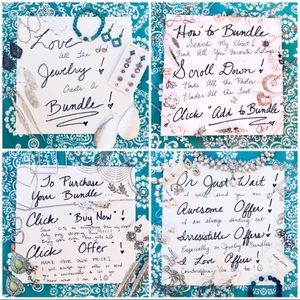 Love
All The
Jewelry!
Create A
Bundle!
How to Bundle
Search My Closet!
Find All Your Favorite Items
Scroll Down!
Under All the Photos
Under All the Text
Click "Add to Bundle"
To Purchase
Your Bundle
Click "Buy Now"!
Click Offer!
Make Your Own Price!
I will
Or Just Wait!
I will send you an
Awesome Offer!
I am always sending out
Irresistible Offers!
Especially on Jewelry Bundles
I Love Offers!